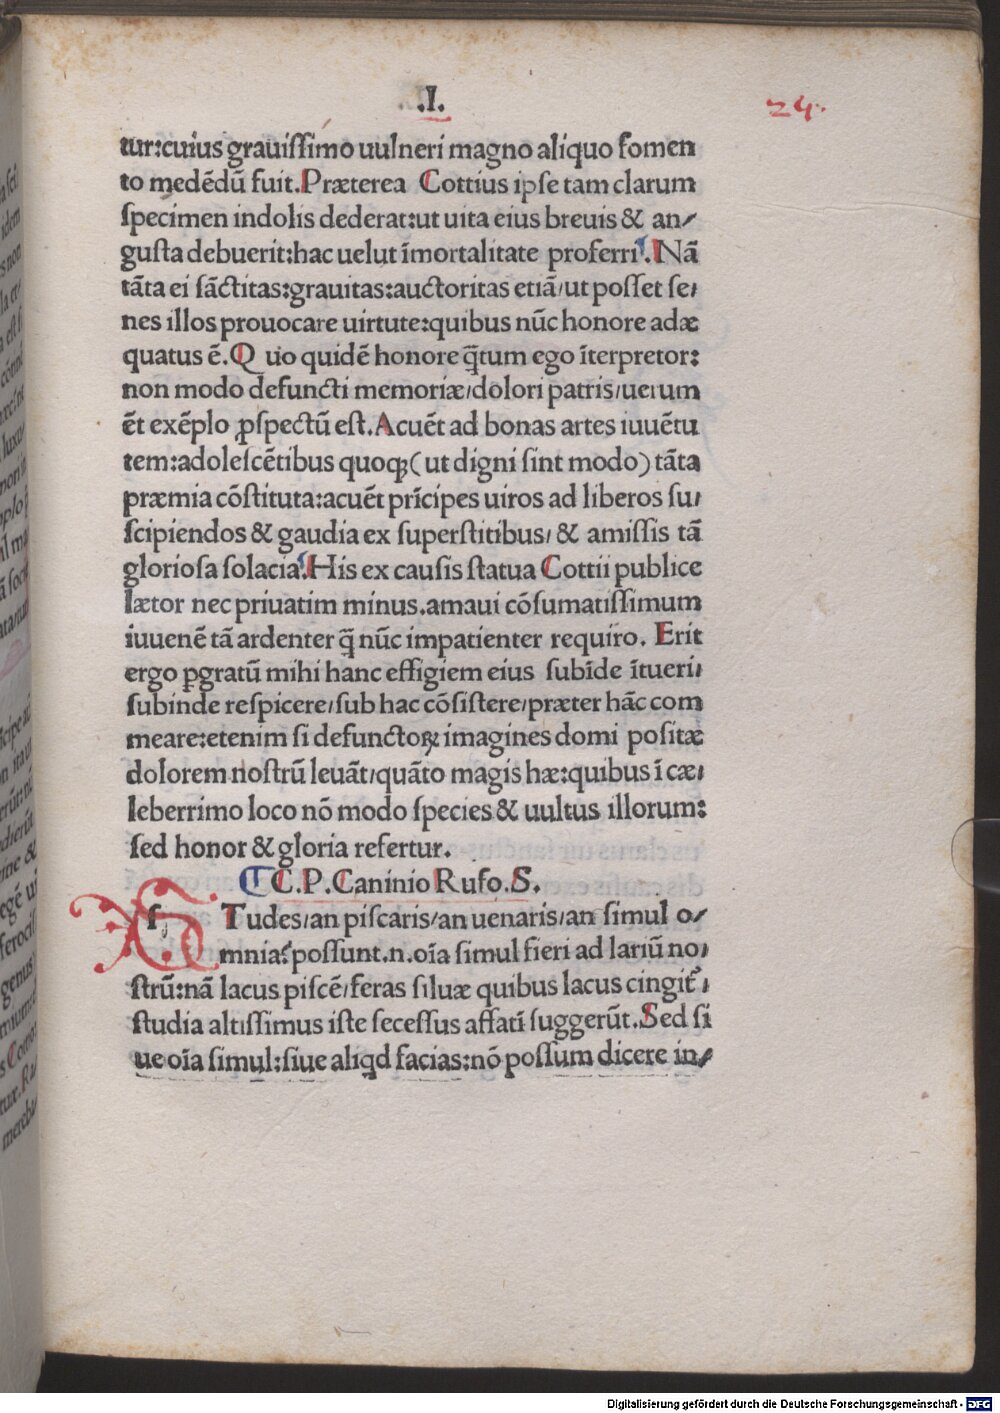 .I.
24.
tur:cuius grauissimo uulneri magno aliquo fomen
to medēdū fuit. Præterea Cottius ipse tam clarum
specimen indolis dederat:ut uita eius breuis & an⸗
gusta debuerit:hac uelut īmortalitate proferri. Nā
tāta ei sāctitas:grauitas:auctoritas etiā/ut posset se/
nes illos prouocare uirtute:quibus nūc honore adæ
quatus ē. Q uio quidē honore q̄tum ego īterpretor:
non modo defuncti memoriæ/dolori patris/uerum
ēt exēplo ꝓspectū est. Acuēt ad bonas artes iuuētu
tem:adolescētibus quoqꝫ(ut digni sint modo)tāta
præmia cōstituta:acuēt prīcipes uiros ad liberos su/
scipiendos & gaudia ex superstitibus/ & amissis tā
gloriosa solacia. His ex causis statua Cottii publice
lætor nec priuatim minus.amaui cōsumatissimum
iuuenē tā ardenter q̄ nūc impatienter requiro. Erit
ergo ꝑgratū mihi hanc effigiem eius subīde ītueri/
subinde respicere/sub hac cōsistere/præter hāc com
meare:etenim si defunctoꝝ imagines domi positæ
dolorem nostrū leuāt/quāto magis hæ:quibus ī cæ/
leberrimo loco nō modo species & uultus illorum:
sed honor & gloria refertur.
C.P.Caninio Rufo.S.
S Tudes/an piscaris/an uenaris/an simul o⸗
mnia? possunt.n.oīa simul fieri ad lariū no/
strū:nā lacus piscē/feras siluæ quibus lacus cingit᷑/
studia altissimus iste secessus affatī suggerūt. Sed si
ue oīa simul:siue aliqd facias:nō possum dicere in⸗
Digitalisierung gefördert durch die Deutsche Forschungsgemeinschaft - DFG